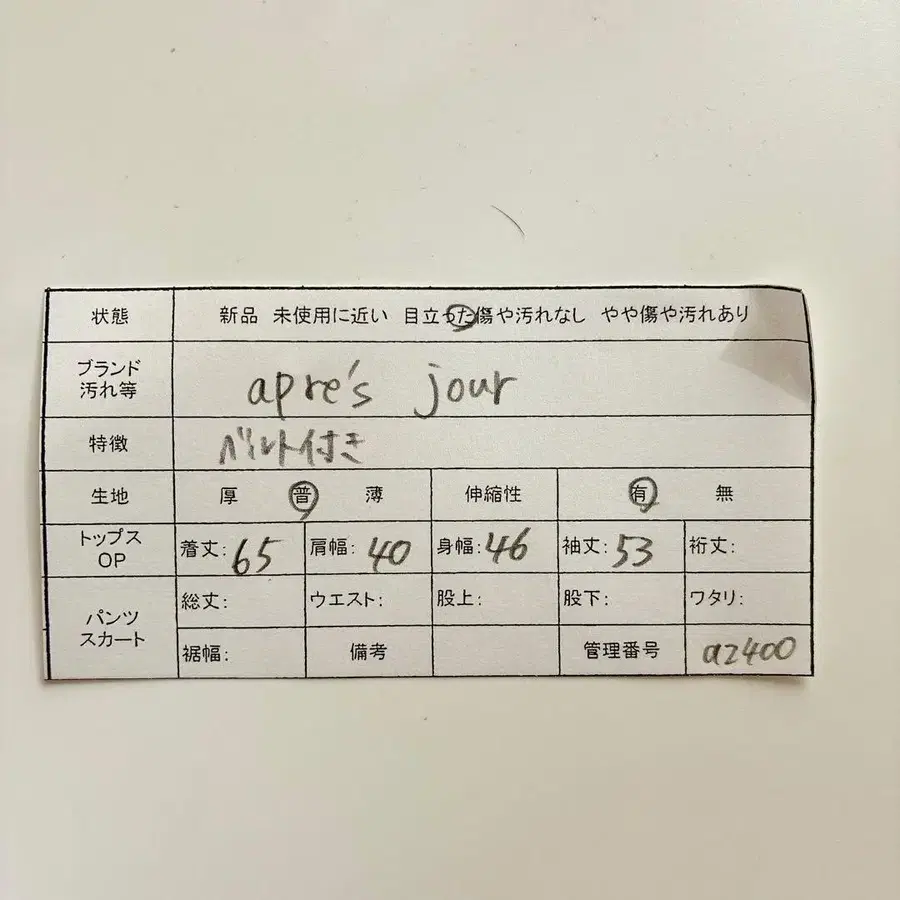 状態 新品 未使用に近い 目立った傷や汚れなし やや傷や汚れあり
ブランド
汚れ等
apre's jour
特徴 ベルト付き
生地 厚 普 薄 伸縮性 有 無
トップス
OP
着丈: 65 肩幅: 40 身幅: 46 袖丈: 53 裄丈:
パンツ
スカート
総丈: ウエスト: 股上: 股下: ワタリ:
裾幅: 備考 管理番号 a2400